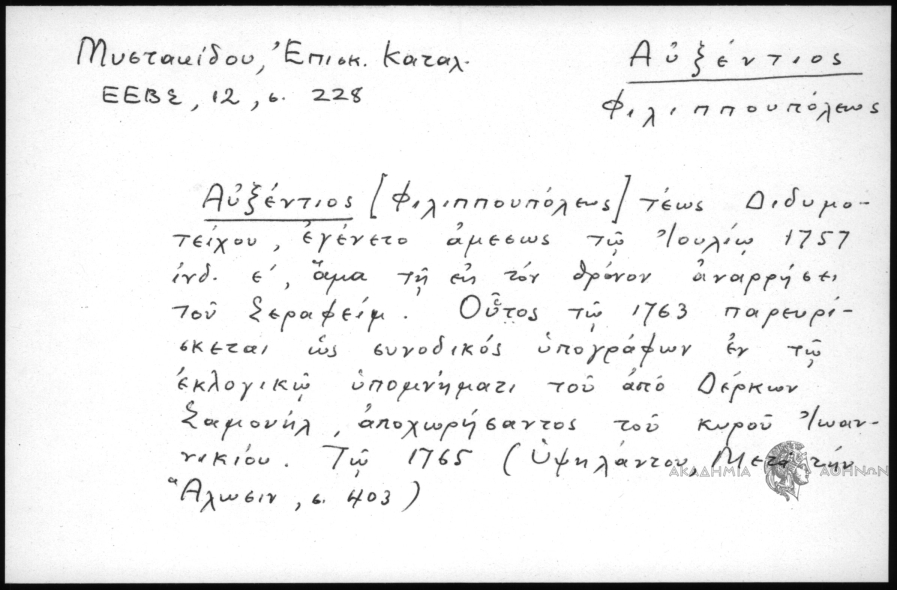 Μυστακίδου, Ἐπισκ. Καταλ.
ΕΕΒΣ, 12, σ. 228
Αὐξέντιος
Φιλιππουπόλεως
Αὐξέντιος [Φιλιππουπόλεως] τέως Διδυμο-
τείχου, ἐγένετο ἀμέσως τῷ Ἰουλίῳ 1757
ἰνδ. ε', ἅμα τῇ εἰς τόν θρόνον ἀναρρήσει
τοῦ Σεραφείμ. Οὗτος τῷ 1763 παρευρί-
σκεται ὡς συνοδικός ὑπογράφων ἐν τῷ
ἐκλογικῷ ὑπομνήματι τοῦ ἀπό Δέρκων
Σαμουήλ, ἀποχωρήσαντος τοῦ κυροῦ Ἰωαν-
νικίου. Τῷ 1765 (Ὑψηλάντου, Μετά τήν
Ἅλωσιν, σ. 403)
ΑΚΑΔΗΜΙΑ ΑΘΗΝΩΝ